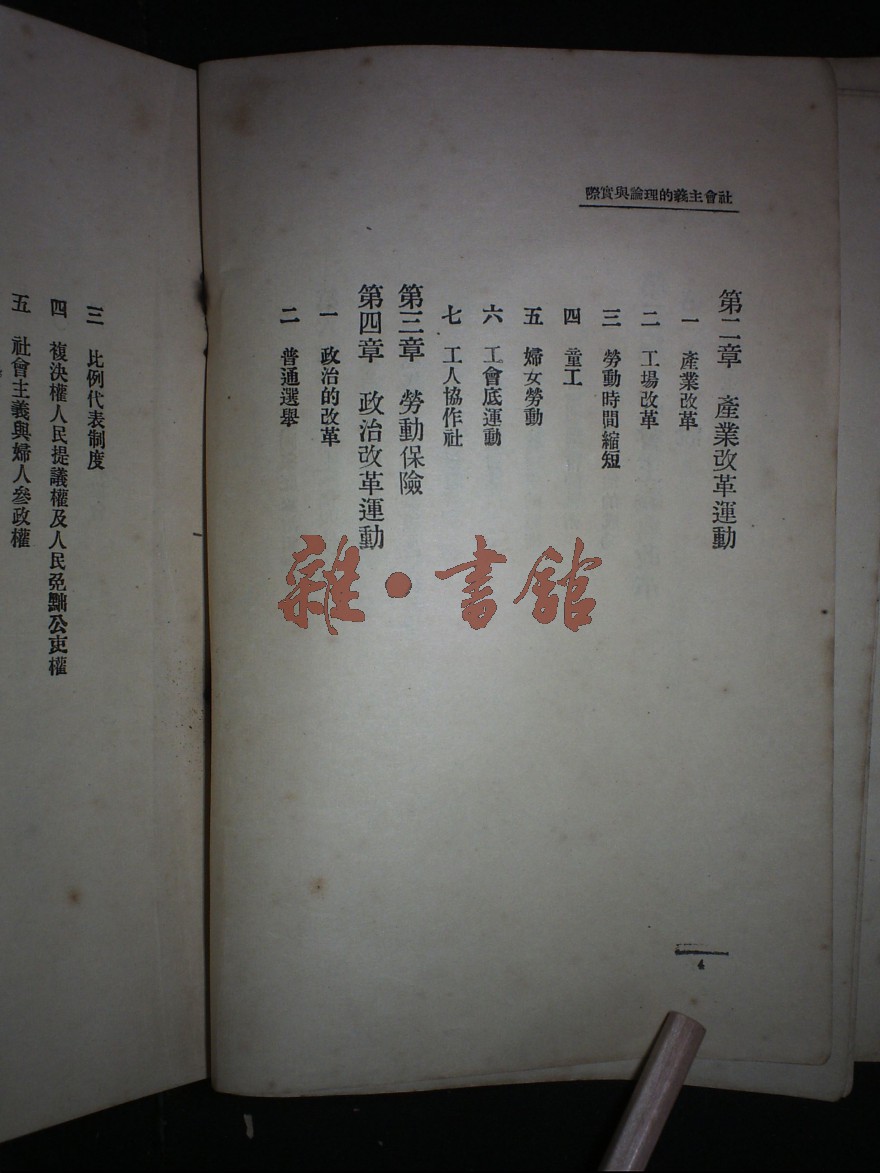 社會主義的理論與實際
第二章 產業改革運動
一 產業改革
二 工場改革
三 勞動時間縮短
四 童工
五 婦女勞動
六 工會底運動
七 工人協作社
第三章 勞動保險
第四章 政治改革運動
一 政治的改革
二 普通選舉
4
三 比例代表制度
四 複決權人民提議權及人民免黜公吏權
五 社會主義與婦人參政權
雜·書館